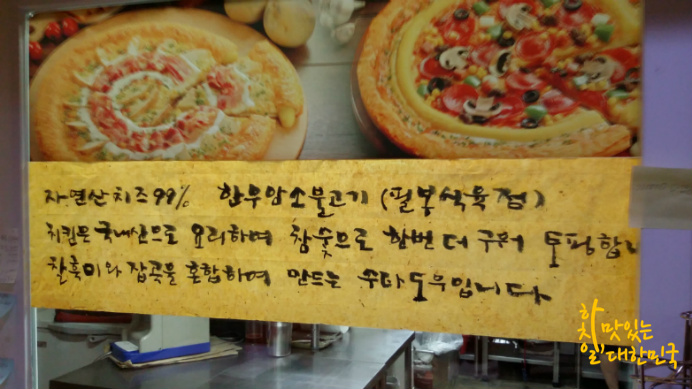 자연산치즈99% 한우암소불고기 (필봉식육점)
치킨은 국내산으로 요리하며 참숯으로 한번더 구워 토핑합니
찰흑미와 잡곡을 혼합하여 만드는 수타도우입니다
한창일
맛있는
대한민국